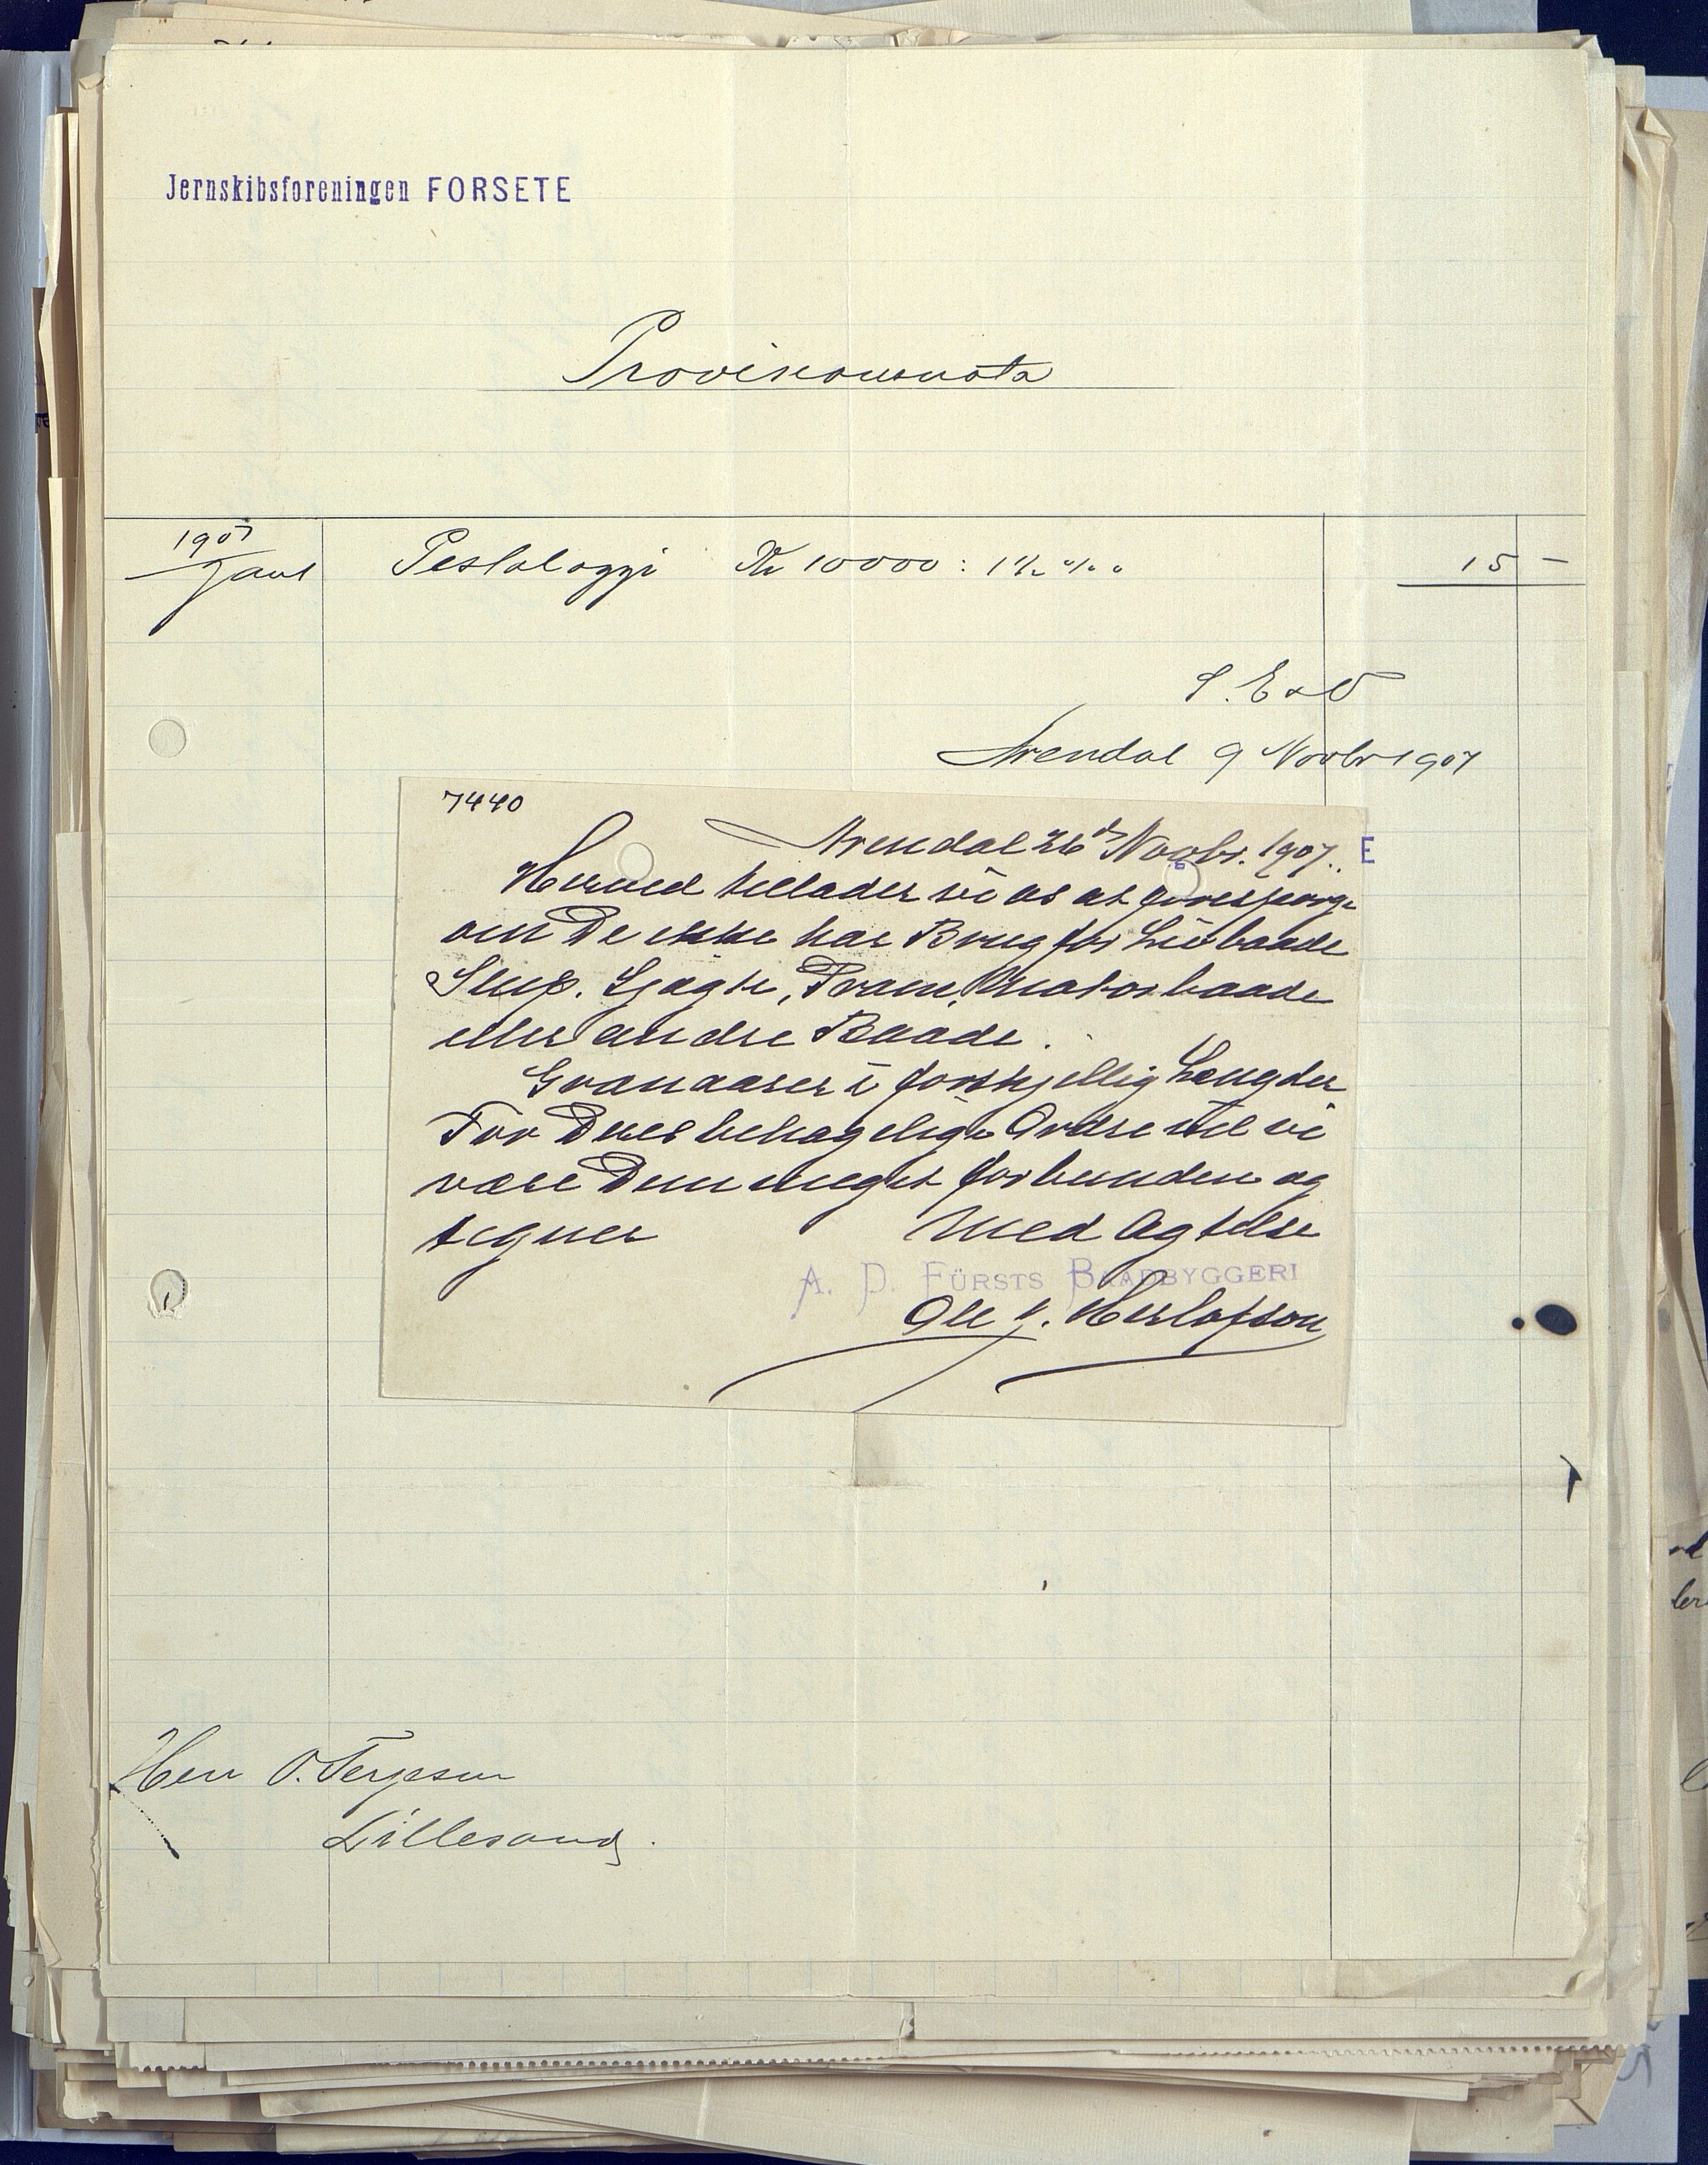 Jernskibsforeningen FORSETE
Provisionsnota
1907
Janr Pestalozzi Kr 10000 : 1½ ‰ 15 —
S. E & O
Arendal 9 Novbr 1907
7440
E
Arendal 26de Novbr. 1907.
Herved tillader vi os at forespørge
om De ikke har Brug for Livbaade
Slup. Gjægte, Pram, Motorbaade
eller andre Baade.
Granaarer i forskjellig Længder
For Deres behagelige Ordre vil vi
være Dem meget forbunden og
tegner Med Agtelse
A. D. FÜRSTS BAADBYGGERI
Ole H. Herlofson
Herr O. Terjesen
Lillesand.